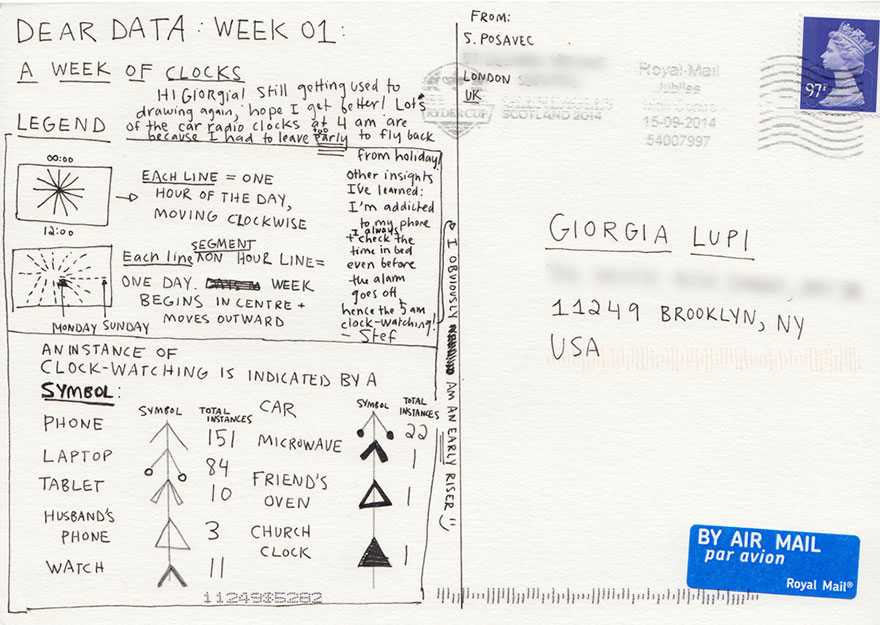 DEAR DATA: WEEK 01:
A WEEK OF CLOCKS
Hi Giorgia! Still getting used to
drawing again, hope I get better! Lots
of the car radio clocks at 4 am are
because I had to leave too early to fly back
from holiday!
Other insights
I've learned:
I'm addicted
to my phone
+ I always check the
time in bed
even before
the alarm
goes off,
hence the 5 am
clock-watching!
— Stef
LEGEND
00:00
12:00
EACH LINE = ONE
HOUR OF THE DAY,
MOVING CLOCKWISE
Each line SEGMENT ON HOUR LINE =
ONE DAY. WEEK
BEGINS IN CENTRE +
MOVES OUTWARD
MONDAY SUNDAY
I OBVIOUSLY AM AN EARLY RISER
AN INSTANCE OF
CLOCK-WATCHING IS INDICATED BY A
SYMBOL:
SYMBOL TOTAL INSTANCES
PHONE 151
LAPTOP 84
TABLET 10
HUSBAND'S PHONE 3
WATCH 11
SYMBOL TOTAL INSTANCES
CAR 22
MICROWAVE 1
FRIEND'S OVEN 1
CHURCH CLOCK 1
11249$5282
FROM:
S. POSAVEC
LONDON
UK
RYDER CUP
GLENEAGLES
SCOTLAND 2014
Royal Mail
Jubilee
Mail Centre
15-09-2014
54007997
97P
GIORGIA LUPI
11249 BROOKLYN, NY
USA
BY AIR MAIL
par avion
Royal Mail®